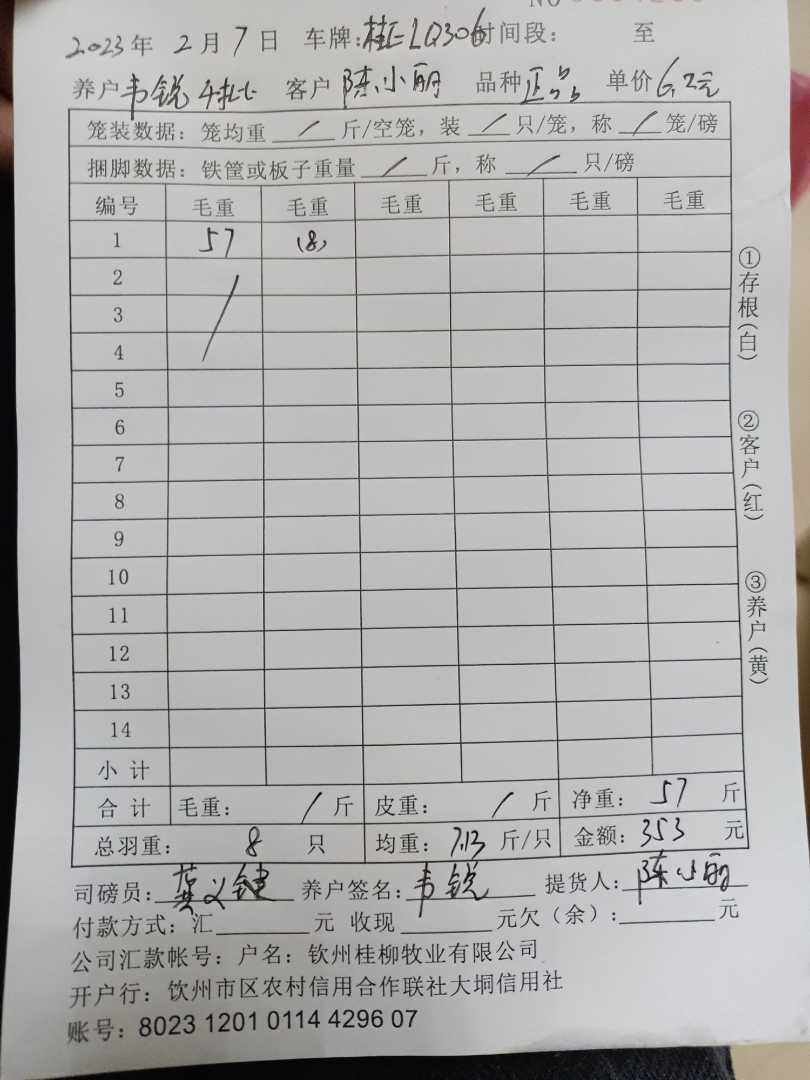 NO
2023年 2月7日 车牌:桂E LQ306 时间段: 至
养户 韦锐 客户 陈小丽 品种 正品 单价 6.2元
笼装数据: 笼均重 / 斤/空笼, 装 / 只/笼, 称 / 笼/磅
捆脚数据: 铁筐或板子重量 / 斤, 称 / 只/磅
编号 毛重 毛重 毛重 毛重 毛重 毛重
1 57 (8)
2
3
4
5
6
7
8
9
10
11
12
13
14
小计
合计 毛重: / 斤 皮重: / 斤 净重: 57 斤
总羽重: 8 只 均重: 7.13 斤/只 金额: 353 元
司磅员: 龚义键 养户签名: 韦锐 提货人: 陈小丽
付款方式: 汇 元 收现 元欠(余): 元
公司汇款帐号: 户名: 钦州桂柳牧业有限公司
开户行: 钦州市区农村信用合作联社大垌信用社
账号: 8023 1201 0114 4296 07
①存根(白)
②客户(红)
③养户(黄)